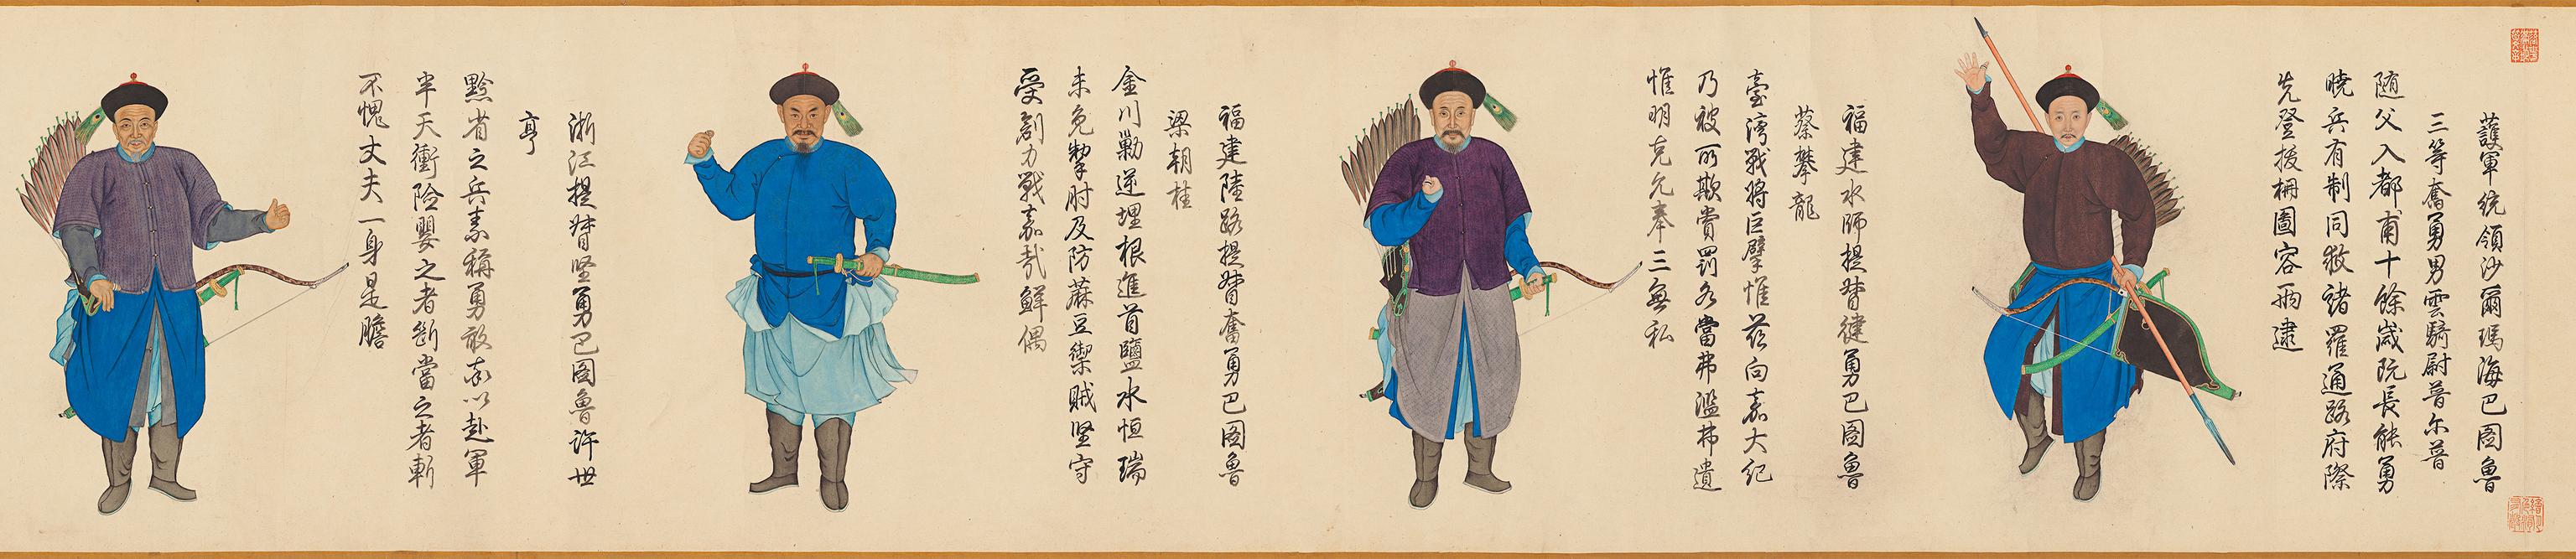 護軍統領沙爾瑪海巴圖魯
三等奮勇男雲騎尉普尔普
随父入都甫十餘歲阮長能勇
曉兵有制同敵諸羅通路府際
先登拔柵圖容兩逮
福建水師提督健勇巴圖魯
蔡攀龍
臺灣戰將巨擘惟茲向嘉大紀
乃被所欺賞罰各當弗濫弗遺
惟明克允奉三無私
福建陸路提督奮勇巴圖魯
梁朝桂
金川勦逆埋根進首鹽水恒瑞
未免掣肘及防蔴豆禦賊堅守
受創力戰嘉哉鮮偶
浙江提督堅勇巴圖魯許世
亨
黔省之兵素稱勇敢率以赴軍
半天衝險嬰之者斷當之者斬
不愧丈夫一身是膽